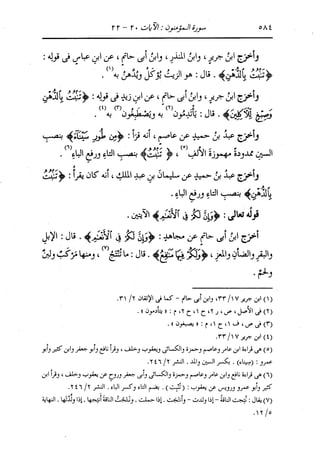 ٥٨٤ سورة المؤمنون : الآيات ٢٠ - ٢٢
وأخرج ابنُ جريرٍ ، وابنُ المنذرِ ، وابنُ أبى حاتمٍ ، عن ابنِ عباسٍ فى قولِه :
﴿تَنْبُتُ بِالدُّهْنِ﴾ . قال : هو الزيتُ يُؤكلُ ويُدهنُ به(١) .
وأخرج ابنُ جريرٍ ، وابنُ أبى حاتمٍ ، عن ابنِ زيدٍ فى قولِه : ﴿تَنْبُتُ بِالدُّهْنِ
وَصِبْغٍ لِلْآكِلِينَ﴾ . قال : يَأْتَدِمُون(٢) به ويَصْطَبِغُون(٣) به(٤) .
وأخرج عبدُ بنُ حميدٍ عن عاصمٍ ، أنه قرأ : ﴿مِن طُورِ سَيْنَآءَ﴾ بنصبِ
السينِ ممدودةً مهموزةَ الألفِ(٥) ، ﴿تَنْبُتُ﴾ بنصبِ التاءِ ورفعِ الباءِ(٦) .
وأخرج عبدُ بنُ حميدٍ عن سليمانَ بنِ عبدِ الملكِ ، أنه كان يقرأُ : ﴿تَنْبُتُ
بِالدُّهْنِ﴾ بنصبِ التاءِ ورفعِ الباءِ .
قولُه تعالى : ﴿وَإِنَّ لَكُمْ فِى الْأَنْعَٰمِ﴾ الآيتين .
أخرج ابنُ أبى حاتمٍ عن مجاهدٍ : ﴿وَإِنَّ لَكُمْ فِى الْأَنْعَٰمِ﴾ . قال : الإبلُ
والبقرُ والضأنُ والمعزُ ، ﴿وَلَكُمْ فِيهَا مَنَٰفِعُ﴾ . قال : ما تُنْتَجُ(٧) ، ومنها مَرْكَبٌ ولبنٌ
ولحمٌ .
(١) ابن جرير ١٧/ ٣٣، وابن أبى حاتم - كما فى الإتقان ٢/ ٣١.
(٢) فى الأصل ، ص ، ر ٢، ح ١، ح ٢، م : « يتأدمون » .
(٣) فى ص ، ف ١، ح ١، م : « يصبغون » .
(٤) ابن جرير ١٧/ ٣٣.
(٥) هى قراءة ابن عامر وعاصم وحمزة والكسائى ويعقوب وخلف ، وقرأ نافع وأبو جعفر وابن كثير وأبو
عمرو : (سِيناء) . بكسر السين والمد . النشر ٢/ ٢٤٦.
(٦) هى قراءة نافع وابن عامر وعاصم وحمزة والكسائى وأبى جعفر وروح عن يعقوب وخلف ، وقرأ ابن
كثير وأبو عمرو ورويس عن يعقوب : (تُنْبِت) . بضم التاء وكسر الباء . النشر ٢/ ٢٤٦.
(٧) يقال : نُتِجت الناقةُ - إذا ولدت - وأنتجت . إذا حملت . ونَتَجْتُ الناقةَ أَنْتِجُها . إذا ولَّدْتَها . النهاية
٥/ ١٢.